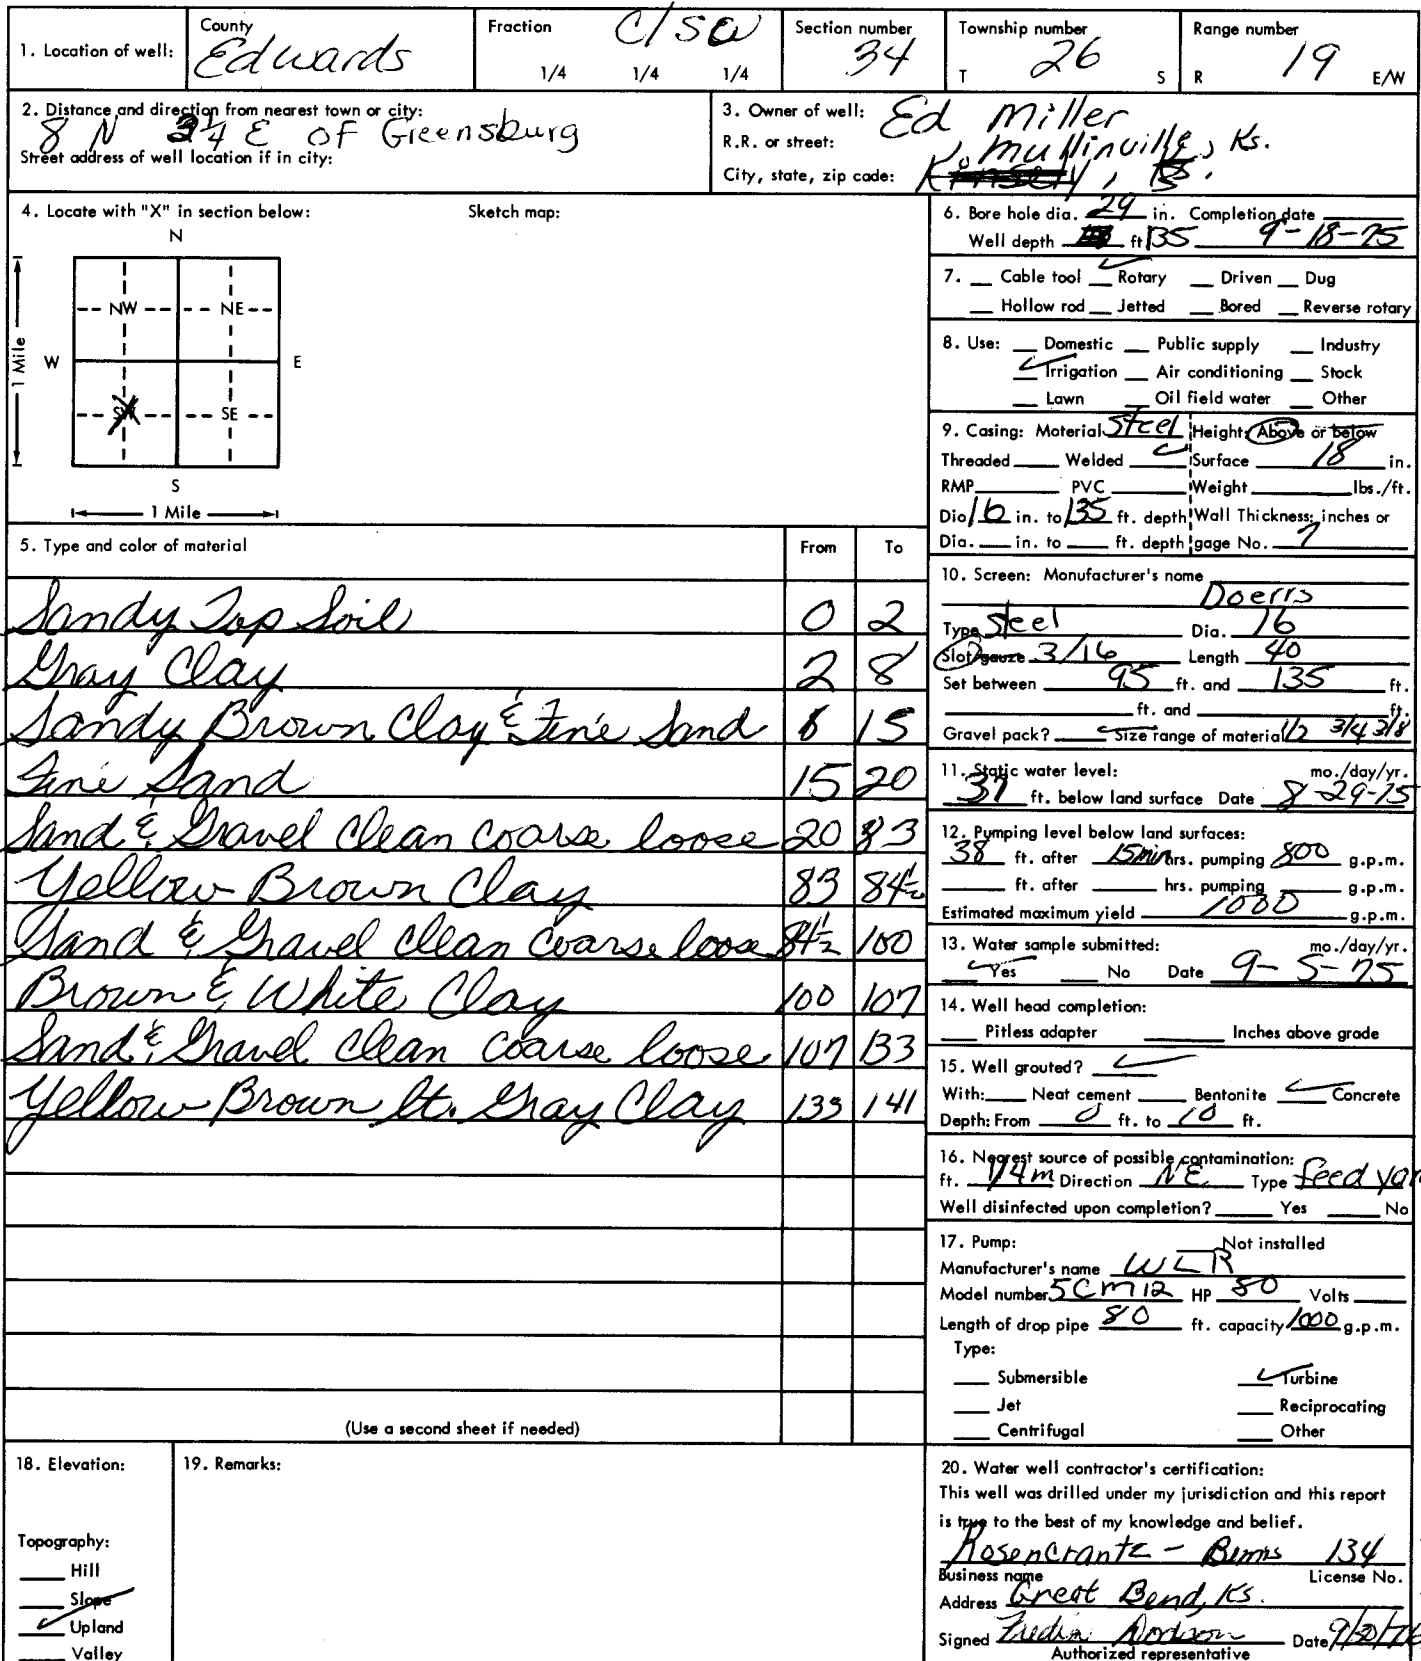 1. Location of well: County Edwards Fraction C/SW 1/4 1/4 1/4 Section number 34 Township number T 26 S Range number R 19 E/W
2. Distance and direction from nearest town or city:
8 N 2 1/4 E OF Greensburg
Street address of well location if in city:
3. Owner of well: Ed Miller
R.R. or street: Mullinville, Ks.
City, state, zip code:
4. Locate with "X" in section below: Sketch map:
N
NW NE
W E
1 Mile
SW SE
S
1 Mile
5. Type and color of material From To
Sandy Top Soil 0 2
Gray Clay 2 8
Sandy Brown Clay & Fine Sand 8 15
Fine Sand 15 20
Sand & Gravel Clean Coarse loose 20 83
Yellow Brown Clay 83 84½
Sand & Gravel Clean Coarse loose 84½ 100
Brown & White Clay 100 107
Sand & Gravel Clean Coarse loose 107 133
Yellow Brown lt. Gray Clay 133 141
(Use a second sheet if needed)
6. Bore hole dia. 29 in. Completion date
Well depth ft 135 9-18-75
7. Cable tool Rotary Driven Dug
Hollow rod Jetted Bored Reverse rotary
8. Use: Domestic Public supply Industry
Irrigation Air conditioning Stock
Lawn Oil field water Other
9. Casing: Material Steel Height: Above or below
Threaded Welded Surface 18 in.
RMP PVC Weight lbs./ft.
Dia 16 in. to 135 ft. depth Wall Thickness: inches or
Dia. in. to ft. depth gage No. 7
10. Screen: Manufacturer's name
Doerrs
Type Steel Dia. 16
Slot/gauze 3/16 Length 40
Set between 95 ft. and 135 ft.
ft. and ft.
Gravel pack? Size range of material 1/2 3/4 3/8
11. Static water level: mo./day/yr.
37 ft. below land surface Date 8-29-75
12. Pumping level below land surfaces:
38 ft. after 15 min hrs. pumping 800 g.p.m.
ft. after hrs. pumping g.p.m.
Estimated maximum yield 1000 g.p.m.
13. Water sample submitted: mo./day/yr.
Yes No Date 9-5-75
14. Well head completion:
Pitless adapter Inches above grade
15. Well grouted?
With: Neat cement Bentonite Concrete
Depth: From 0 ft. to 10 ft.
16. Nearest source of possible contamination:
ft. 1/4 m Direction NE Type feed yar
Well disinfected upon completion? Yes No
17. Pump: Not installed
Manufacturer's name WLR
Model number 5CM12 HP 80 Volts
Length of drop pipe 80 ft. capacity 1000 g.p.m.
Type:
Submersible Turbine
Jet Reciprocating
Centrifugal Other
18. Elevation:
Topography:
Hill
Slope
Upland
Valley
19. Remarks:
20. Water well contractor's certification:
This well was drilled under my jurisdiction and this report
is true to the best of my knowledge and belief.
Rosencrantz - Bemis 134
Business name License No.
Address Great Bend, Ks.
Signed Dodson Date 9/30/76
Authorized representative